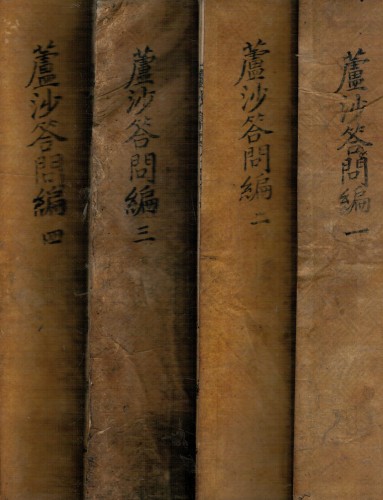 蘆沙答問編 一
蘆沙答問編 二
蘆沙答問編 三
蘆沙答問編 四